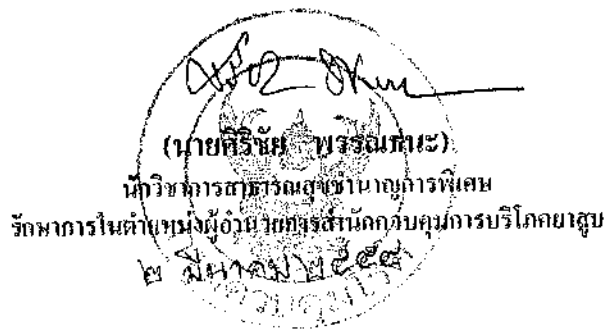 (นายศิริชัย พรรณธนะ)
นักวิชาการสาธารณสุขชำนาญการพิเศษ
รักษาการในตำแหน่งผู้อำนวยการสำนักควบคุมการบริโภคยาสูบ
๒ มีนาคม ๒๕๕๘